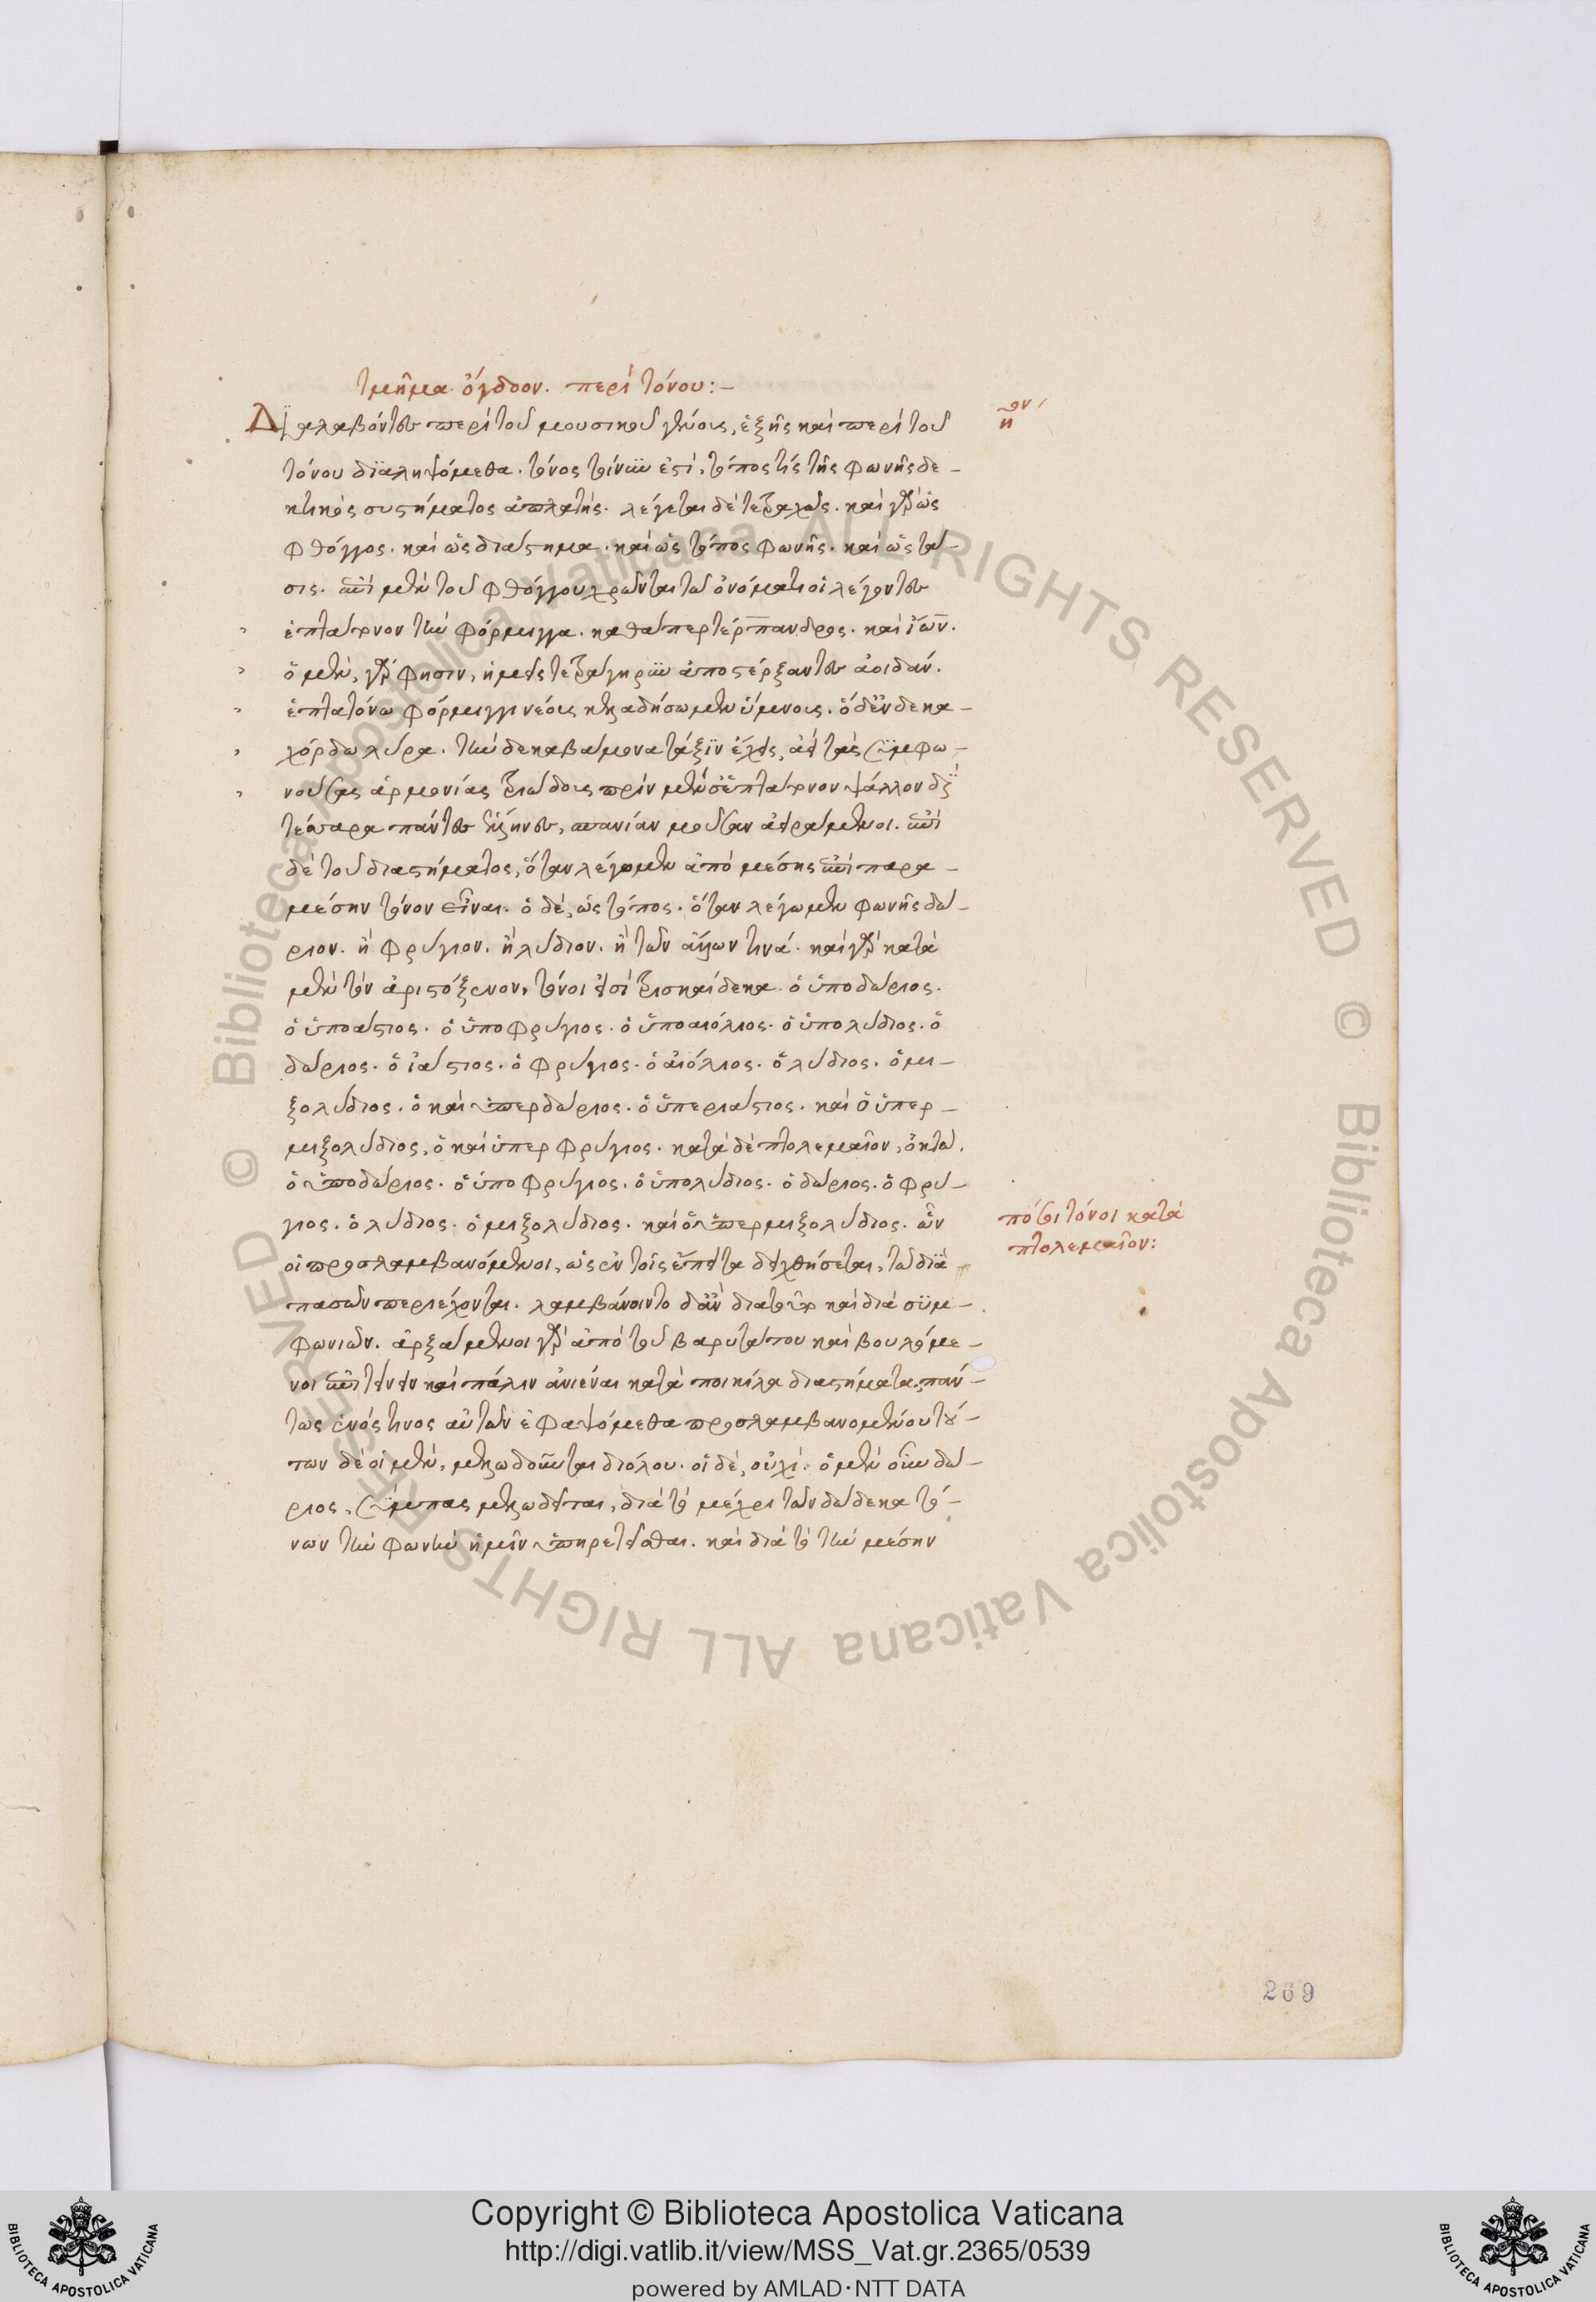 τμῆμα ὄγδοον. περὶ τόνου:—
Διαλαβόντες περὶ τοῦ μουσικοῦ γένους, ἑξῆς καὶ περὶ τοῦ
τόνου διαληψόμεθα. τόνος τοίνυν ἐστὶ, τόπος τίς τῆς φωνῆς δε-
κτικὸς συστήματος ἀπλατής. λέγεται δὲ τετραχῶς. καὶ γὰρ ὡς
φθόγγος. καὶ ὡς διάστημα. καὶ ὡς τόπος φωνῆς. καὶ ὡς τά-
σις. ἐπὶ μὲν τοῦ φθόγγου χρῶνται τῶ ὀνόματι οἱ λέγοντες
ἑπτάτονον τὴν φόρμιγγα. καθάπερ τέρπανδρος. καὶ ἴων.
ὁ μὲν, γάρ φησιν, ἡμεῖς τετράγηρυν ἀποστέρξαντες ἀοιδάν.
ἑπτατόνω φόρμιγγι νέους κελαδήσωμεν ὕμνους. ὁ δὲ ἐν δεκα-
χόρδω λύρα. τὴν δεκαβάμονα τάξιν ἔχεις, ἀεὶ τὰς συμφω-
νούσας ἁρμονίας τριόδους πρὶν μέν σ' ἑπτάτονον ψάλλον διὰ
τέσσαρα πάντες ἕλληνες, σπανίαν μοῦσαν ἀειράμενοι. ἐπὶ
δὲ τοῦ διαστήματος, ὅταν λέγωμεν ἀπὸ μέσης ἐπὶ παρα-
μέσην τόνον εἶναι. ὁ δὲ, ὡς τόπος. ὅταν λέγωμεν φωνῆς δώ-
ριον. ἢ φρύγιον. ἢ λύδιον. ἢ τῶν ἄλλων τινά. καὶ γὰρ κατὰ
μὲν τὸν ἀριστόξενον, τόνοι εἰσὶ τρισκαίδεκα. ὁ ὑποδώριος.
ὁ ὑποάστιος. ὁ ὑποφρύγιος. ὁ ὑποαιόλιος. ὁ ὑπολύδιος. ὁ
δώριος. ὁ ἰάστιος. ὁ φρύγιος. ὁ αἰόλιος. ὁ λύδιος. ὁ μι-
ξολύδιος. ὁ καὶ ὑπερδώριος. ὁ ὑπεριάστιος. καὶ ὁ ὑπερ-
μιξολύδιος, ὁ καὶ ὑπερφρύγιος. κατὰ δὲ πτολεμαῖον, ὀκτώ.
ὁ ὑποδώριος. ὁ ὑποφρύγιος. ὁ ὑπολύδιος. ὁ δώριος. ὁ φρύ-
γιος. ὁ λύδιος. ὁ μιξολύδιος. καὶ ὁ ὑπερμιξολύδιος. ὧν
οἱ προσλαμβανόμενοι, ὡς ἐν τοῖς ἔπειτα δειχθήσεται, τῶ διὰ
πασῶν περιέχονται. λαμβάνοιντο δ' ἂν διὰ τε καὶ διὰ συμ-
φωνιῶν. ἀρξάμενοι γὰρ ἀπὸ τοῦ βαρυτάτου καὶ βουλόμε-
νοι ἐπιτείνειν καὶ πάλιν ἀνιέναι κατὰ ποικίλα διαστήματα, πάν-
τως ἑνός τινος αὐτῶν ἐφαψόμεθα προσλαμβανομένου τού-
των δὲ οἱ μὲν, μελωδοῦνται διόλου. οἱ δὲ, οὐχί. ὁ μὲν οὖν δώ-
ριος, σύμπας μελωδεῖται, διὰ τὸ μέχρι τῶν δώδεκα τό-
νων τὴν φωνὴν ἡμῖν ὑπηρετεῖσθαι. καὶ διὰ τὸ τὴν μέσην
πόσοι τόνοι κατὰ
πτολεμαῖον:
269
Copyright © Biblioteca Apostolica Vaticana
http://digi.vatlib.it/view/MSS_Vat.gr.2365/0539
powered by AMLAD·NTT DATA